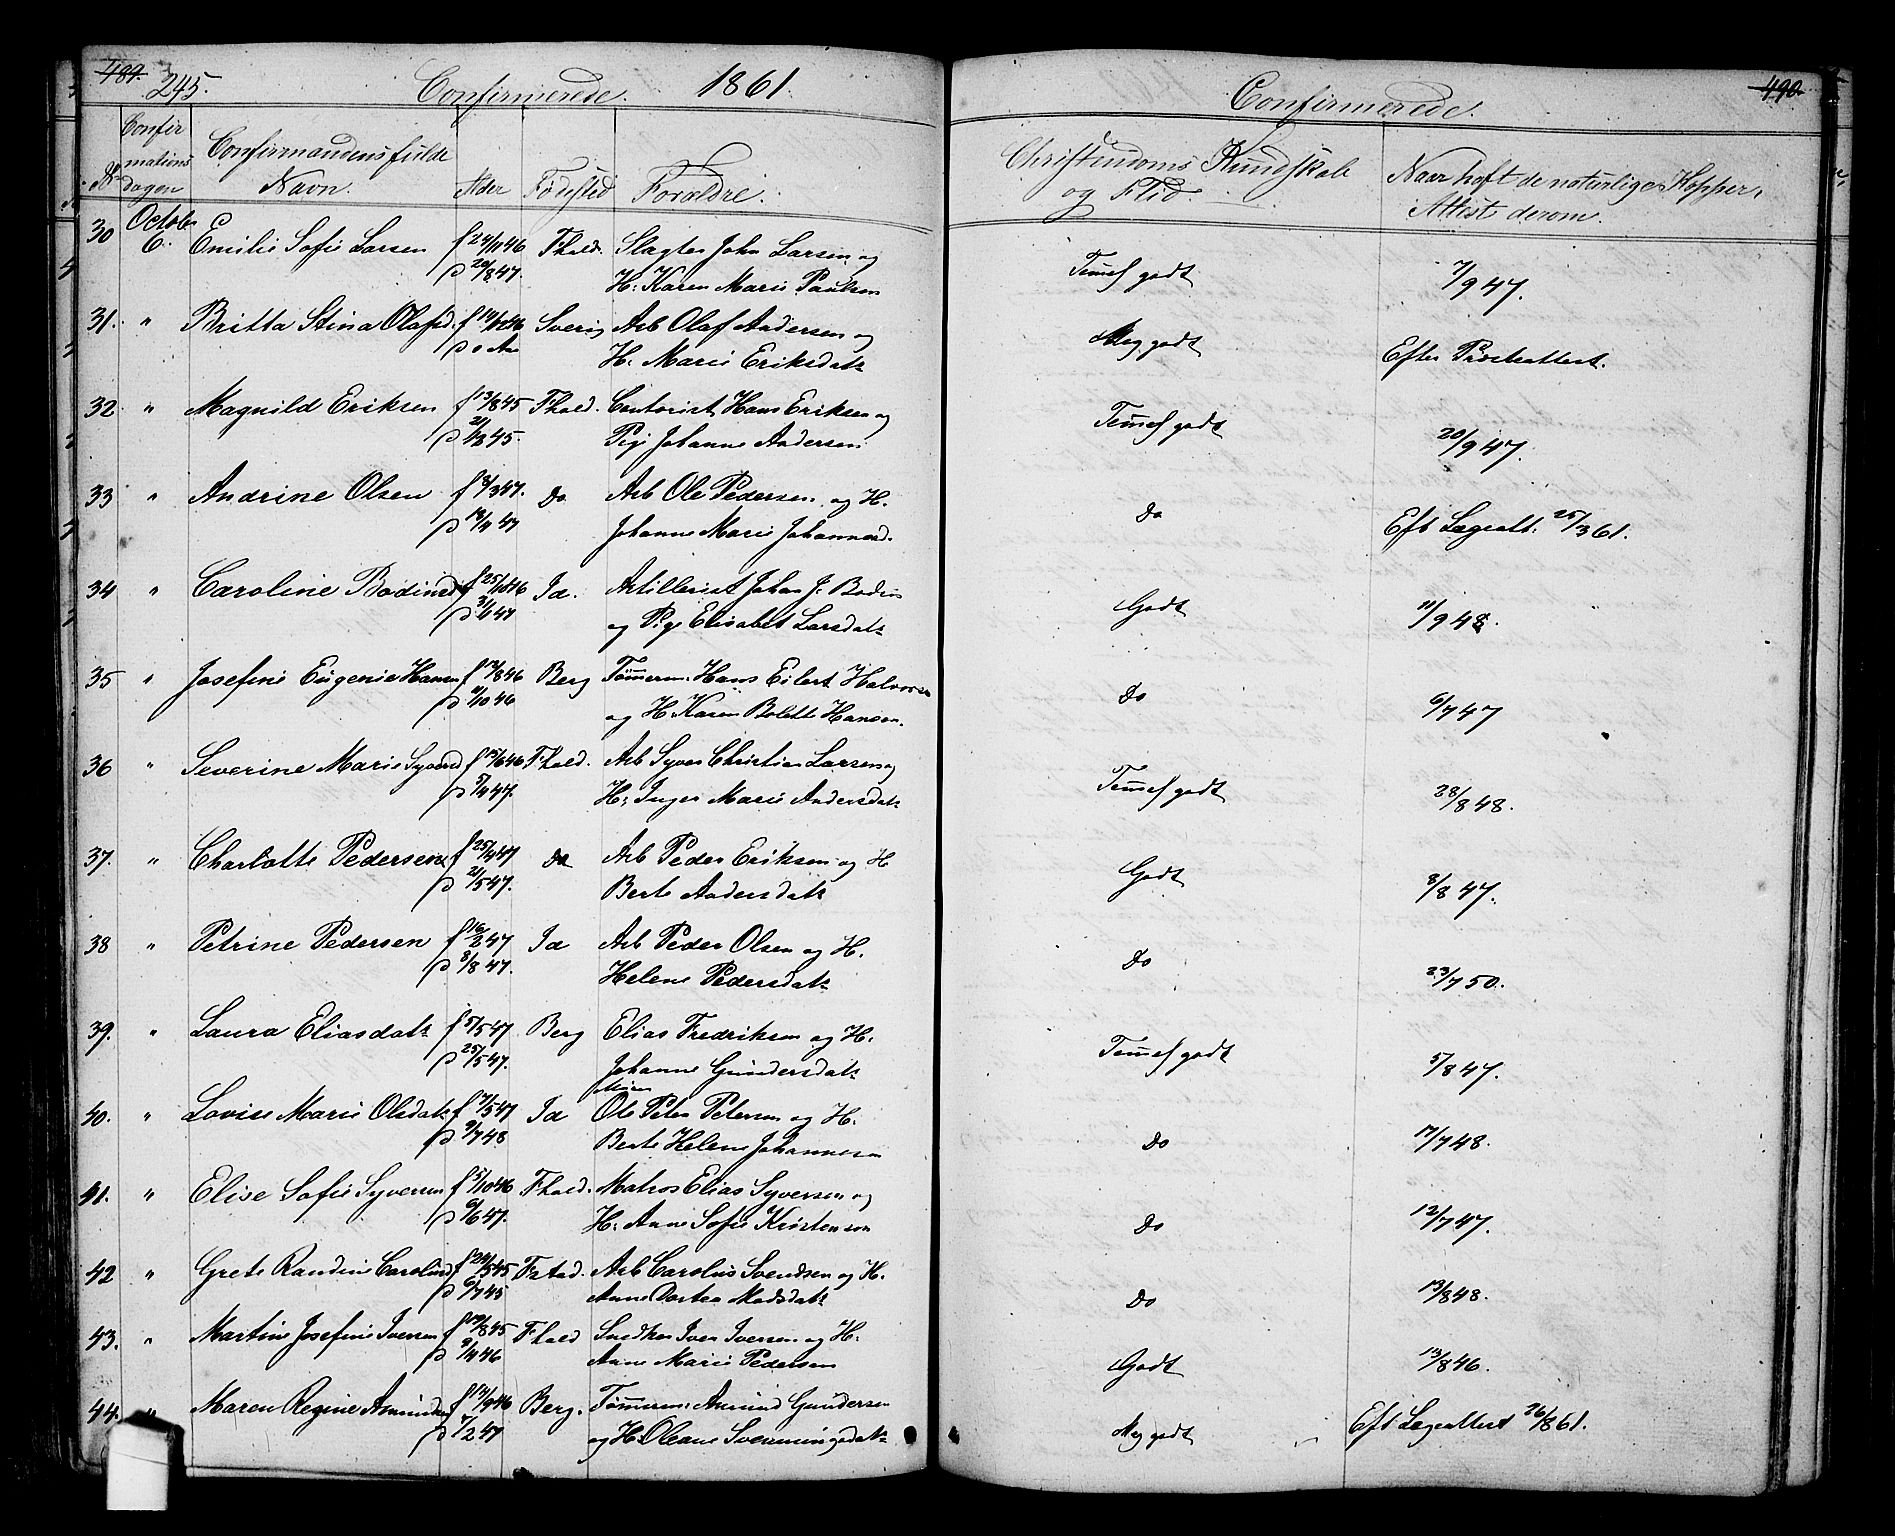 489. 245. Confirmerede. 1861.
No Confirmationsdagen Confirmandens fulde Navn. Alder Fødested Forældre.
30 Octob 6. Emilie Sofie Larsen f 24/11 46 Fhald. Slagter John Larsen og
p 20/8 47. H. Karen Marie Paulsen
31. " Britta Stina Olafsd. f 46 Sverig Arb Olaf Andersen og
H. Marie Eriksdatr
32. " Magnild Eriksen f 13/8 45 Fhald. Contorist Hans Eriksen og
p 45. Pige Johanne Andersen
33 " Andrine Olsen f 3/3 47. Do Arb Ole Pedersen og H.
p 18/4 47 Johanne Marie Johannesd.
34 " Caroline Bodinsd f 25/10 46 Id. Artillerist Johan J. Bodin
p 47 og Pige Elisabet Larsdatr
35 " Josefine Eugenie Hansen f 13/8 46 Berg Tømmerm. Hans Eilert Halvorsen
p 11/10 46 og H. Karen Bolette Hansen.
36 " Severine Marie Syversd f 15/6 46 Fhald. Arb Syver Christian Larsen og
p 5/4 47. H. Inger Marie Andersdatr
37. " Charlotte Pedersen f 25/4 47 do Arb Peder Eriksen og H
p 21/5 47. Berte Andersdatr
38 " Petrine Pedersen f 16/2 47 Id Arb Peder Olsen og H.
p 8/8 47. Helene Pedersdatr
39. " Laura Eliasdatr f 5/5 47 Berg Elias Fredriksen og H.
p 25/5 47. Johanne Gundersdatr
40. " Lovise Marie Olsdatr f 17/5 47 Id Ole Peter Petersen og H.
p 9/7 48 Berte Helene Johannesen
41. " Elise Sofie Syversen f 5/10 46 Fhald. Matros Elias Syversen og
p 6/6 47. H. Anne Sofie Kristensen
42 " Grete Randine Carolusd f 24/5 45 Fstad. Arb Carolus Svendsen og H.
p 6/7 45 Anne Dortea Madsdatr
43. " Martine Josefine Iversen f 19/8 45 Fhald Snedker Iver Iversen og H.
p 9/4 46 Anne Marie Pedersen
44. " Maren Regine Amundsen f 14/9 46 Berg. Tømmerm. Amund Gundersen
p 7/2 47 og H. Oleane Svenningsdatr
Confirmerede. 490.
Christendoms Kundskab og Flid. Naar haft de naturlige Kopper, Attest derom.
Temel godt 7/9 47.
Meg godt Efter Præsteattest.
Temel godt 20/9 47.
Do Eft Lægeatt. 25/3 61.
Godt 11/9 48.
Do 6/7 47
Temel godt 28/8 48.
Godt 8/8 47.
Do 23/7 50.
Temel godt 5/8 47.
Do 17/7 48.
Do 12/7 47.
Do 13/8 48.
Godt 13/8 46.
Meg godt Eft Lægeattest 26/8 61.